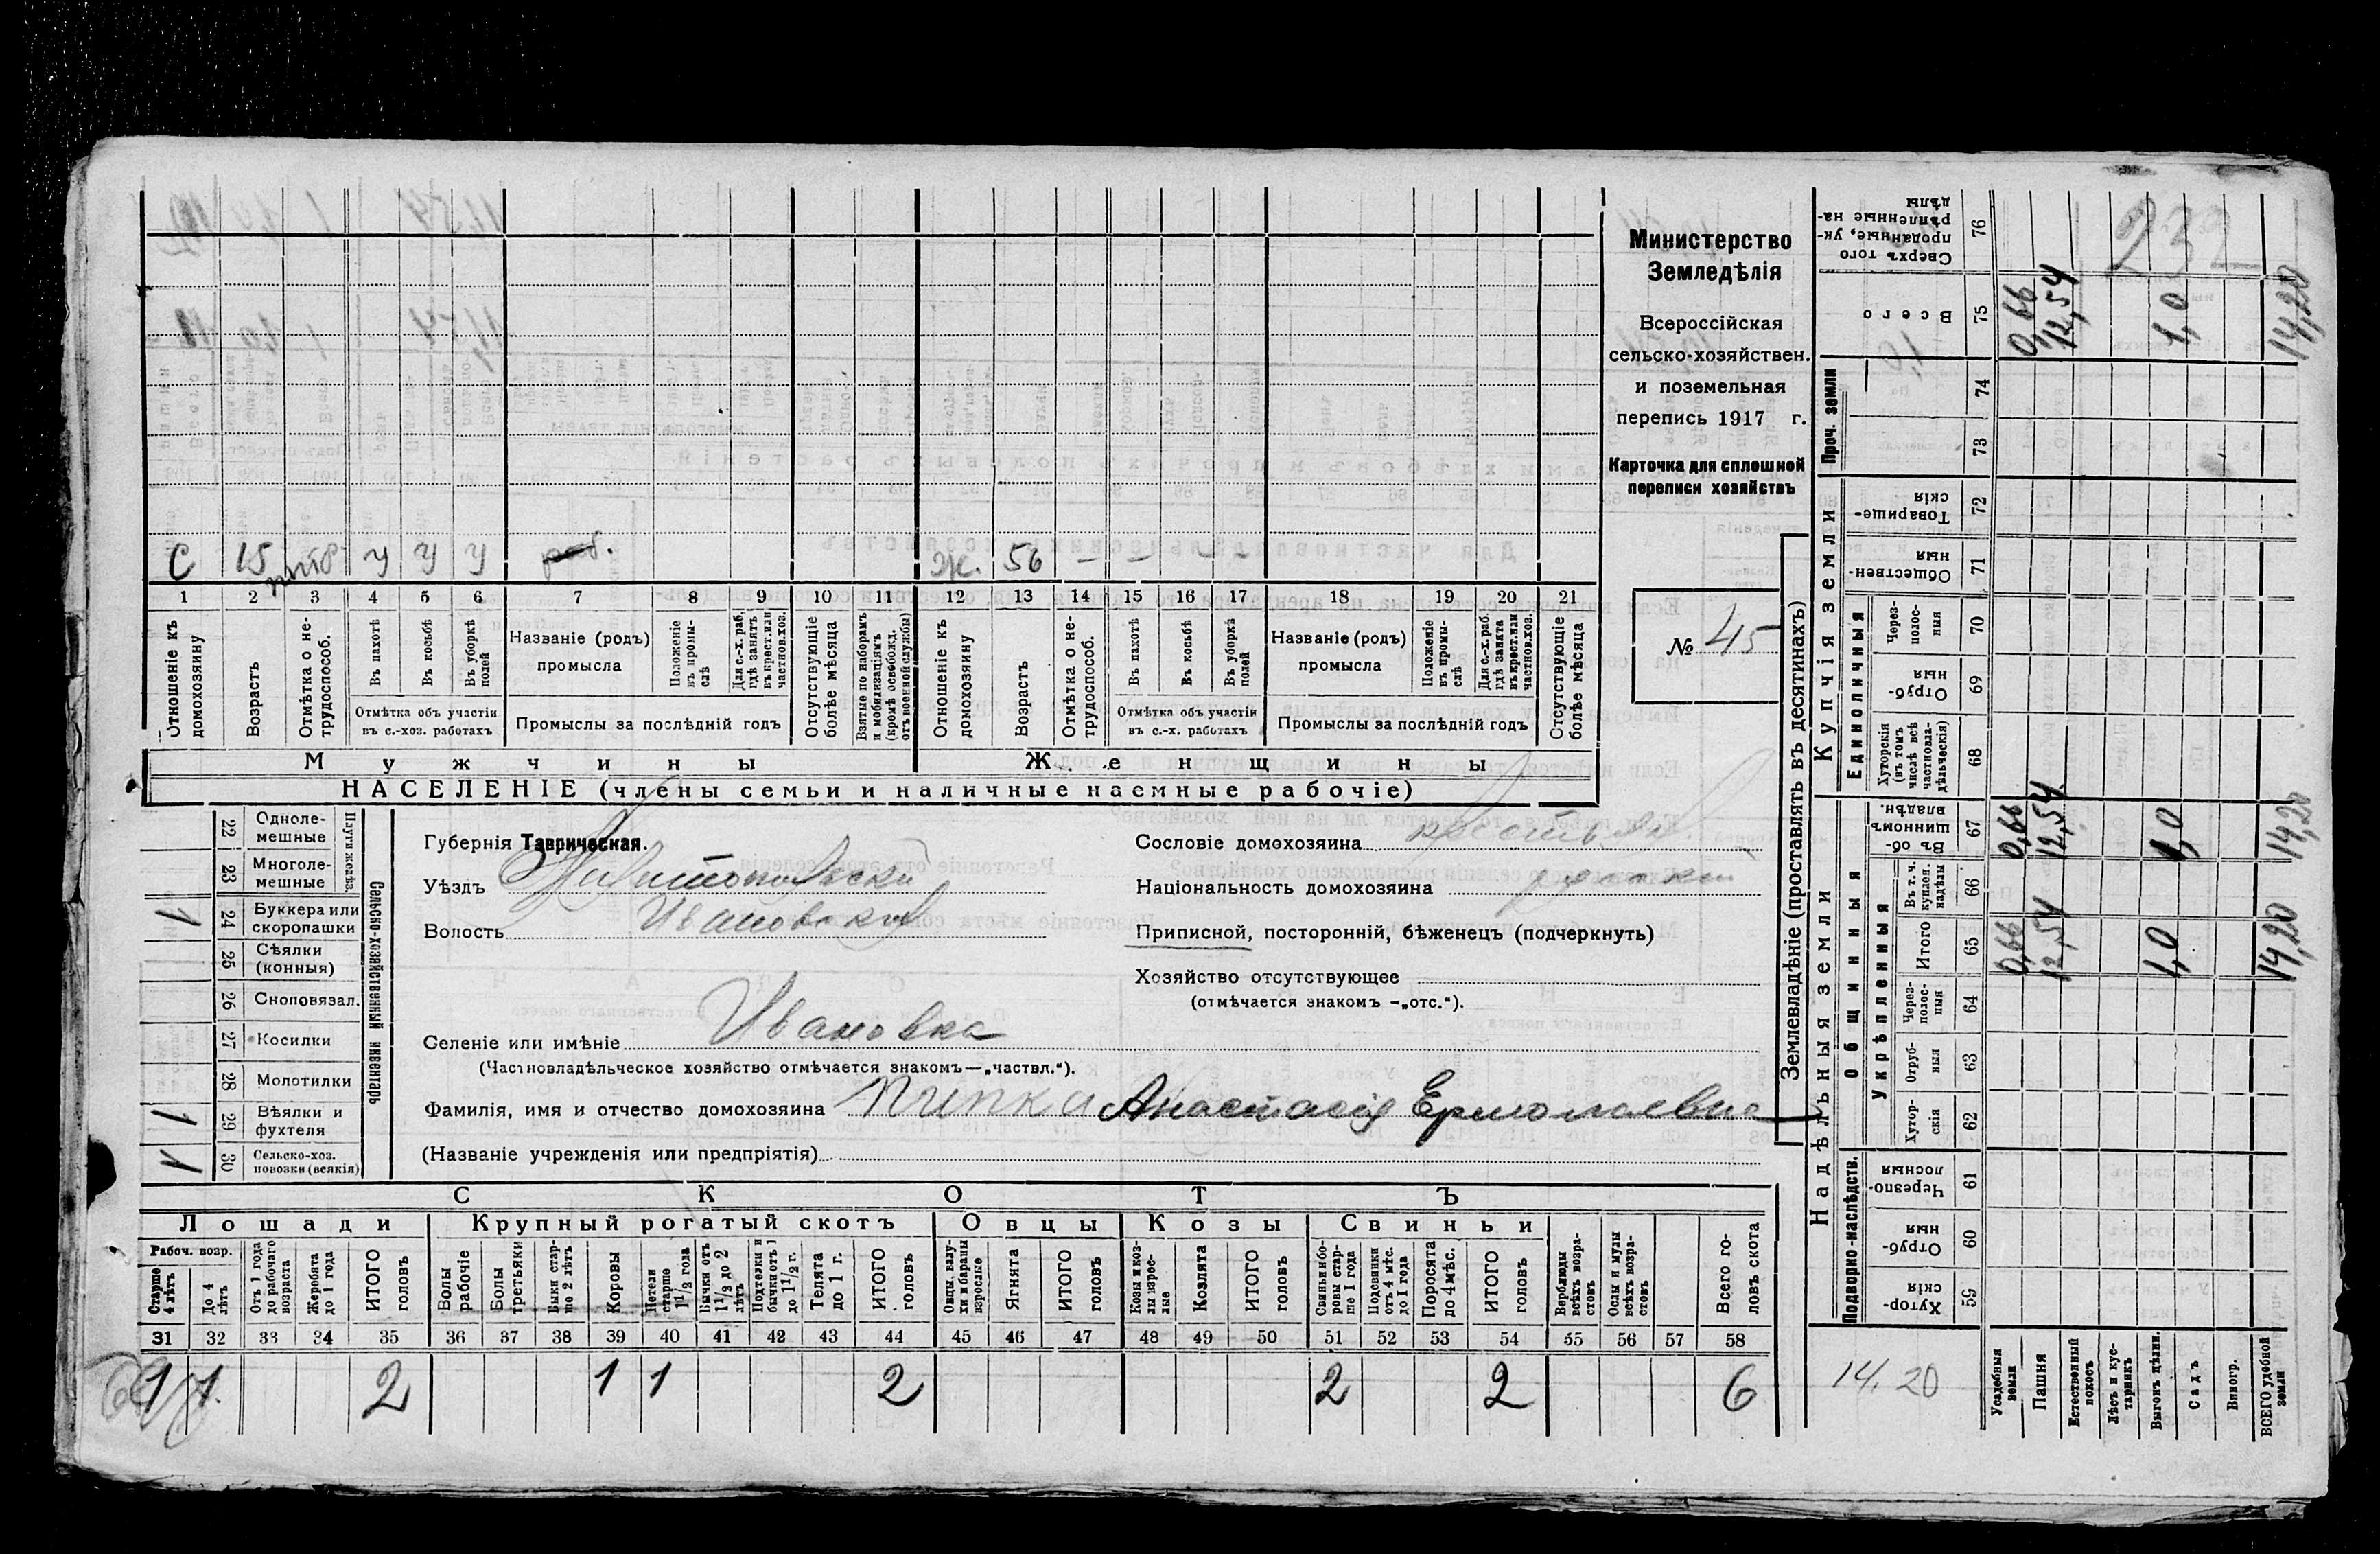 232
С 15 У У У раб. Ж. 56 — — — —
1 2 3 4 5 6 7 8 9 10 11 12 13 14 15 16 17 18 19 20 21
Отношеніе къ домохозяину
Возрастъ
Отмѣтка о не-трудоспособ.
Въ пахотѣ
Въ косьбѣ
Въ уборкѣ полей
Отмѣтка объ участіи въ с.-хоз. работахъ
Названіе (родъ) промысла
Положеніе въ промы-слѣ
Для с.-х. раб. гдѣ занятъ въ крест. или частнов. хоз.
Промыслы за послѣдній годъ
Отсутствующіе болѣе мѣсяца
Взятые по наборамъ и мобилизаціямъ (кромѣ освобожд. отъ военной службы)
Отношеніе къ домохозяину
Возрастъ
Отмѣтка о не-трудоспособ.
Въ пахотѣ
Въ косьбѣ
Въ уборкѣ полей
Отмѣтка объ участіи въ с.-х. работахъ
Названіе (родъ) промысла
Положеніе въ промы-слѣ
Для с.-х. раб. гдѣ занята въ крест. или частнов. хоз.
Промыслы за послѣдній годъ
Отсутствующіе болѣе мѣсяца
Мужчины Женщины
НАСЕЛЕНІЕ (члены семьи и наличные наемные рабочіе)
Министерство
Земледѣлія
Всероссійская
сельско-хозяйствен.
и поземельная
перепись 1917 г.
Карточка для сплошной
переписи хозяйствъ
№ 45
Сельско-хозяйственный инвентарь
Плуги желѣз.
22 Одноле-мешные
23 Многоле-мешные
1 24 Буккера или скоропашки
25 Сѣялки (конныя)
26 Сноповязал.
27 Косилки
28 Молотилки
1 29 Вѣялки и фухтеля
1 30 Сельско-хоз. повозки (всякія)
Губернія Таврическая.
Уѣздъ Мелитопольскій
Волость Ивановская
Селеніе или имѣніе Ивановка
(Частновладѣльческое хозяйство отмѣчается знакомъ—„частвл.“).
Фамилія, имя и отчество домохозяина Пипка Анастасія Ермолаевна
(Названіе учрежденія или предпріятія)
Сословіе домохозяина
Національность домохозяина
Приписной, посторонній, бѣженецъ (подчеркнуть)
Хозяйство отсутствующее
(отмѣчается знакомъ -„отс.“).
СКОТЪ
Лошади Крупный рогатый скотъ Овцы Козы Свиньи
Рабоч. возр.
Старше 4 лѣтъ
До 4 лѣтъ
Отъ 1 года до рабочаго возраста
Жеребята до 1 года
ИТОГО головъ
Волы рабочіе
Волы третьяки
Быки стар-ше 2 лѣтъ
Коровы
Нетели старше 1 1/2 года
Бычки отъ 1 1/2 до 2 лѣтъ
Подтелки и бычки отъ 1 до 1 1/2 г.
Телята до 1 г.
ИТОГО головъ
Овцы, валу-хи и бараны взрослые
Ягнята
ИТОГО головъ
Козы и коз-лы взрос-лые
Козлята
ИТОГО головъ
Свиньи и бо-ровы стар-ше 1 года
Подсвинки отъ 4 мѣс. до 1 года
Поросята до 4 мѣс.
ИТОГО головъ
Верблюды всѣхъ возра-стовъ
Ослы и мулы всѣхъ возра-стовъ
Всего го-ловъ скота
31 32 33 34 35 36 37 38 39 40 41 42 43 44 45 46 47 48 49 50 51 52 53 54 55 56 57 58
1 1 2 1 1 2 2 2 6
Землевладѣніе (проставлять въ десятинахъ)
Надѣльныя земли Купчія земли Проч. земли
Подворно-наслѣдств. Общинныя Единоличныя
Укрѣпленныя
Хутор-скія 59
Отруб-ныя 60
Черезпо-лосныя 61
Хутор-скія 62
Отруб-ныя 63
Через-полос-ныя 64
Итого 65 0,66 12,54 1,0 14,20
Въ т. ч. куплен. надѣлы 66
Въ об-щинномъ владѣн. 67 0,66 12,54 1,0 14,20
Хуторскія (въ томъ числѣ всѣ частновла-дѣльческія) 68
Отруб-ныя 69
Через-полос-ныя 70
Обществен-ныя 71
Товарище-скія 72
73
74
Всего 75 0,66 12,54 1,0 14,20
Сверхъ того проданные, ук-рѣпленные на-дѣлы 76
14,20
Усадебныя земли
Пашня
Естественный покосъ
Лѣсъ и кус-тарникъ
Выгонъ цѣлин.
Садъ
Виногр.
ВСЕГО удобной земли